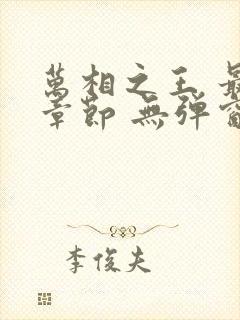 萬相之王 最
章節 無弹窗
李俊夫